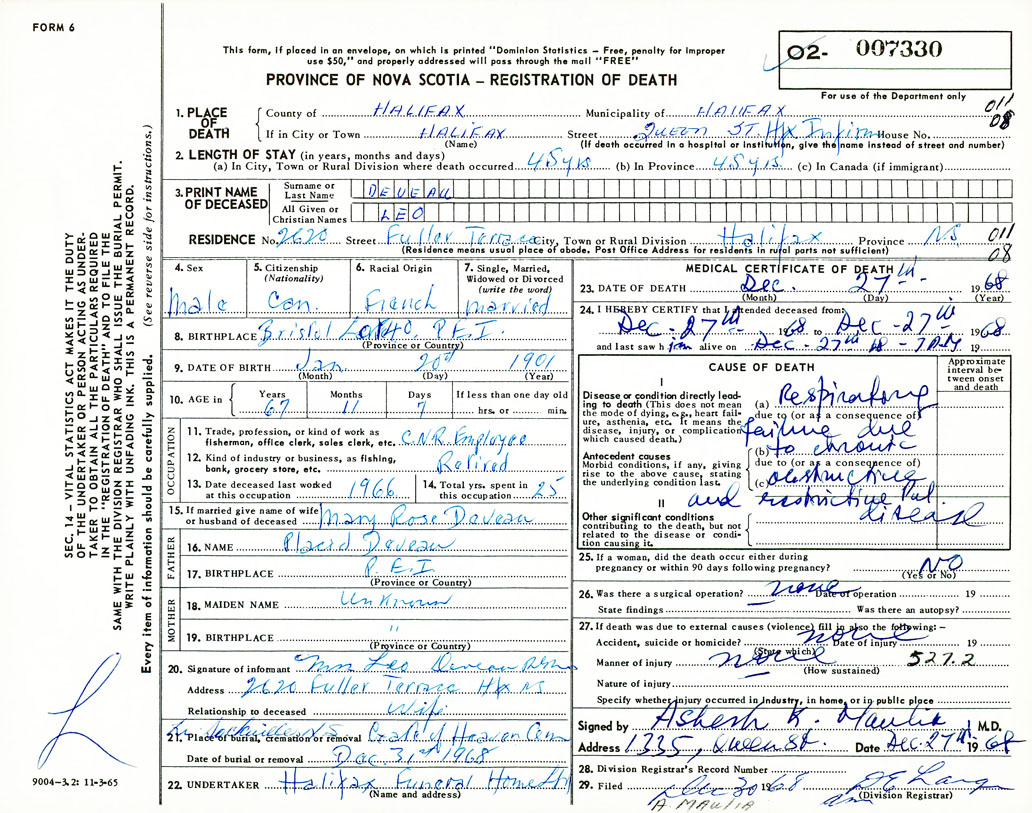 FORM 6
This form, if placed in an envelope, on which is printed "Dominion Statistics – Free, penalty for improper
use $50," and properly addressed will pass through the mail "FREE"
PROVINCE OF NOVA SCOTIA – REGISTRATION OF DEATH
02- 007330
For use of the Department only
011
08
1. PLACE OF DEATH
County of HALIFAX Municipality of HALIFAX
If in City or Town HALIFAX Street QUEEN ST. Hfx Infirm House No.
(Name) (If death occurred in a hospital or institution, give the name instead of street and number)
2. LENGTH OF STAY (in years, months and days)
(a) In City, Town or Rural Division where death occurred 45 yrs (b) In Province 45 yrs. (c) In Canada (if immigrant)
3. PRINT NAME OF DECEASED
Surname or Last Name DEVEAU
All Given or Christian Names LEO
RESIDENCE No. 2620 Street Fuller Terrace City, Town or Rural Division Halifax Province NS
(Residence means usual place of abode. Post Office Address for residents in rural parts not sufficient)
011
08
4. Sex Male
5. Citizenship (Nationality) Can.
6. Racial Origin French
7. Single, Married, Widowed or Divorced (write the word) married
8. BIRTHPLACE Bristol P.E.I
(Province or Country)
9. DATE OF BIRTH Jan. 20 1901
(Month) (Day) (Year)
10. AGE in Years 67 Months 11 Days 7 If less than one day old hrs. or min.
OCCUPATION
11. Trade, profession or kind of work as fisherman, office clerk, sales clerk, etc. C.N.R. Employee
12. Kind of industry or business, as fishing, bank, grocery store, etc. Retired
13. Date deceased last worked at this occupation 1966
14. Total yrs. spent in this occupation 25
15. If married give name of wife or husband of deceased Mary Rose Deveau
FATHER
16. NAME Placid Deveau
17. BIRTHPLACE P.E.I
(Province or Country)
MOTHER
18. MAIDEN NAME Unknown
19. BIRTHPLACE "
(Province or Country)
20. Signature of informant Mrs Leo Deveau
Address 2620 Fuller Terrace Hfx NS
Relationship to deceased Wife
21. Place of burial, cremation or removal Gate of Heaven Cem
Date of burial or removal Dec. 31st 1968
22. UNDERTAKER Halifax Funeral Home
(Name and address)
MEDICAL CERTIFICATE OF DEATH
23. DATE OF DEATH Dec. 27th 1968
(Month) (Day) (Year)
24. I HEREBY CERTIFY that I attended deceased from:
Dec - 27th 1968 to Dec - 27th 1968
and last saw him alive on Dec - 27th 19
CAUSE OF DEATH
Approximate interval between onset and death
I
Disease or condition directly leading to death (This does not mean the mode of dying, e.g., heart failure, asthenia, etc. It means the disease, injury, or complication which caused death.)
(a) Respiratory
due to (or as a consequence of)
failure due
(b) to chronic
Antecedent causes
Morbid conditions, if any, giving rise to the above cause, stating the underlying condition last.
due to (or as a consequence of)
(c) obstructive
and restrictive Pul.
disease
II
Other significant conditions contributing to the death, but not related to the disease or condition causing it.
25. If a woman, did the death occur either during pregnancy or within 90 days following pregnancy? NO
(Yes or No)
26. Was there a surgical operation? none Date of operation 19
State findings Was there an autopsy?
27. If death was due to external causes (violence) fill in also the following: –
Accident, suicide or homicide? none Date of injury 19
(State which)
Manner of injury none 527.2
(How sustained)
Nature of injury
Specify whether injury occurred in Industry, in home, or in public place
Signed by Ashesh K. Maulik M.D.
Address 1335, Queen St. Date Dec. 27th 1968
28. Division Registrar's Record Number
29. Filed Dec 30 1968
(Division Registrar)
SEC. 14 – VITAL STATISTICS ACT MAKES IT THE DUTY
OF THE UNDERTAKER OR PERSON ACTING AS UNDER-
TAKER TO OBTAIN ALL THE PARTICULARS REQUIRED
IN THE "REGISTRATION OF DEATH" AND TO FILE THE
SAME WITH THE DIVISION REGISTRAR WHO SHALL ISSUE THE BURIAL PERMIT.
WRITE PLAINLY WITH UNFADING INK. THIS IS A PERMANENT RECORD.
Every item of information should be carefully supplied. (See reverse side for instructions.)
9004-3.2: 11-3-65